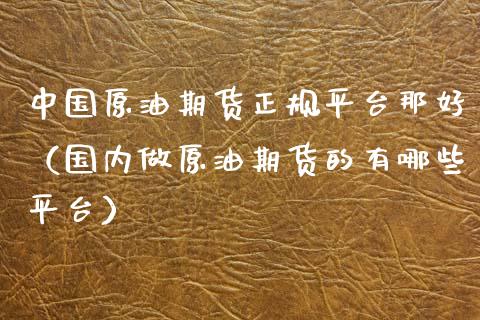 中国原油期货正规平台那好
（国内做原油期货的有哪些
平台）